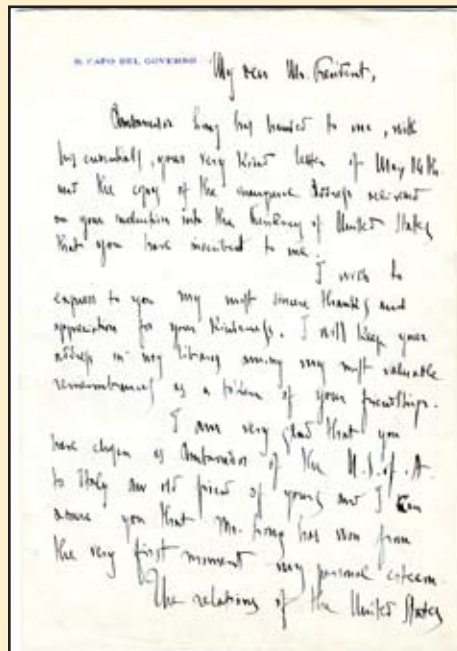 IL CAPO DEL GOVERNO
My dear Mr. President,
Ambassador Long has handed to me, with
his credentials, your very kind letter of May 14th
and the copy of the inaugural address delivered
on your induction into the Presidency of United States
that you have inscribed to me.
I wish to
express to you my most sincere thanks and
appreciation for your kindness. I will keep your
address in my library among my most valuable
remembrances as a token of your friendship.
I am very glad that you
have chosen as Ambassador of the U.S. of A.
to Italy an old friend of yours and I can
assure you that Mr. Long has won from
the very first moment my personal esteem.
The relations of the United States